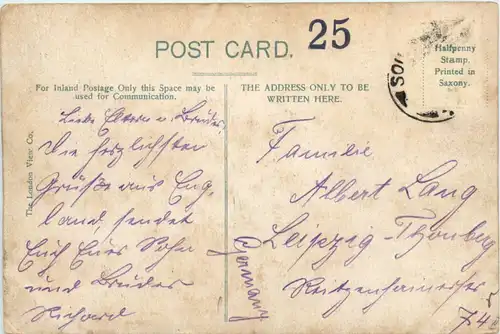 POST CARD.
25
Halfpenny
Stamp.
Printed in
Saxony.
For Inland Postage Only this Space may be
used for Communication.
THE ADDRESS ONLY TO BE
WRITTEN HERE.
The London View Co.
Liebe Eltern u. Bruder
Die herzlichsten
Grüße aus Eng-
land, sendet
Euch Euer Sohn
und Bruder
Richard
Familie
Albert Lang
Leipzig-Thonberg
Reitzenhainerstr
74
Germany